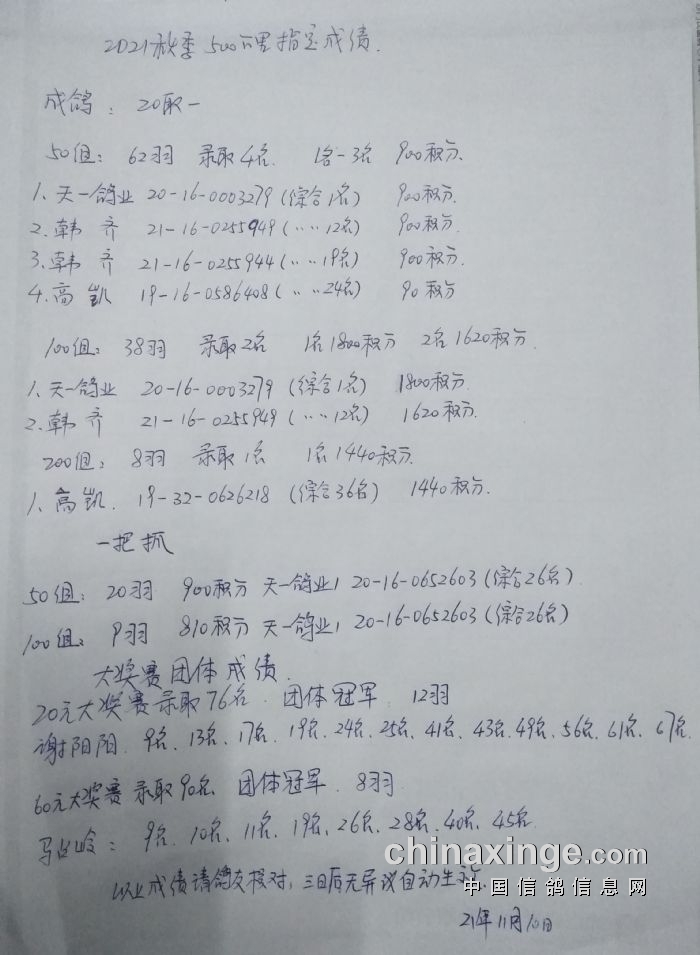 2021秋季500公里指定成绩.
成鸽：20取一
50组：62羽 录取4名 1名-3名 900积分.
1、天一鸽业 20-16-0003279 (综合1名) 900积分.
2、韩齐 21-16-0255949 (‥‥12名) 900积分.
3、韩齐 21-16-0255944 (‥‥19名) 900积分.
4、高凯 19-16-0586408 (‥‥24名) 90积分
100组：38羽 录取2名 1名1800积分 2名1620积分.
1、天一鸽业 20-16-0003279 (综合1名) 1800积分.
2、韩齐 21-16-0255949 (‥‥12名) 1620积分.
200组：8羽 录取1名 1名1440积分.
1、高凯. 19-32-0626218 (综合36名) 1440积分.
一把抓
50组：20羽 900积分 天一鸽业1 20-16-0652603 (综合26名).
100组：9羽 810积分 天一鸽业1 20-16-0652603 (综合26名)
大奖赛团体成绩.
20元大奖赛录取76名. 团体冠军. 12羽
谢阳阳. 9名、13名、17名、19名、24名、25名、41名、43名、49名、56名、61名、67名.
60元大奖赛录取90名. 团体冠军. 8羽.
马岭：9名、10名、11名、19名、26名、28名、40名、45名.
以上成绩请鸽友核对，三日后无异议自动生效.
21年11月10日
chinaxinge.com
中国信鸽信息网